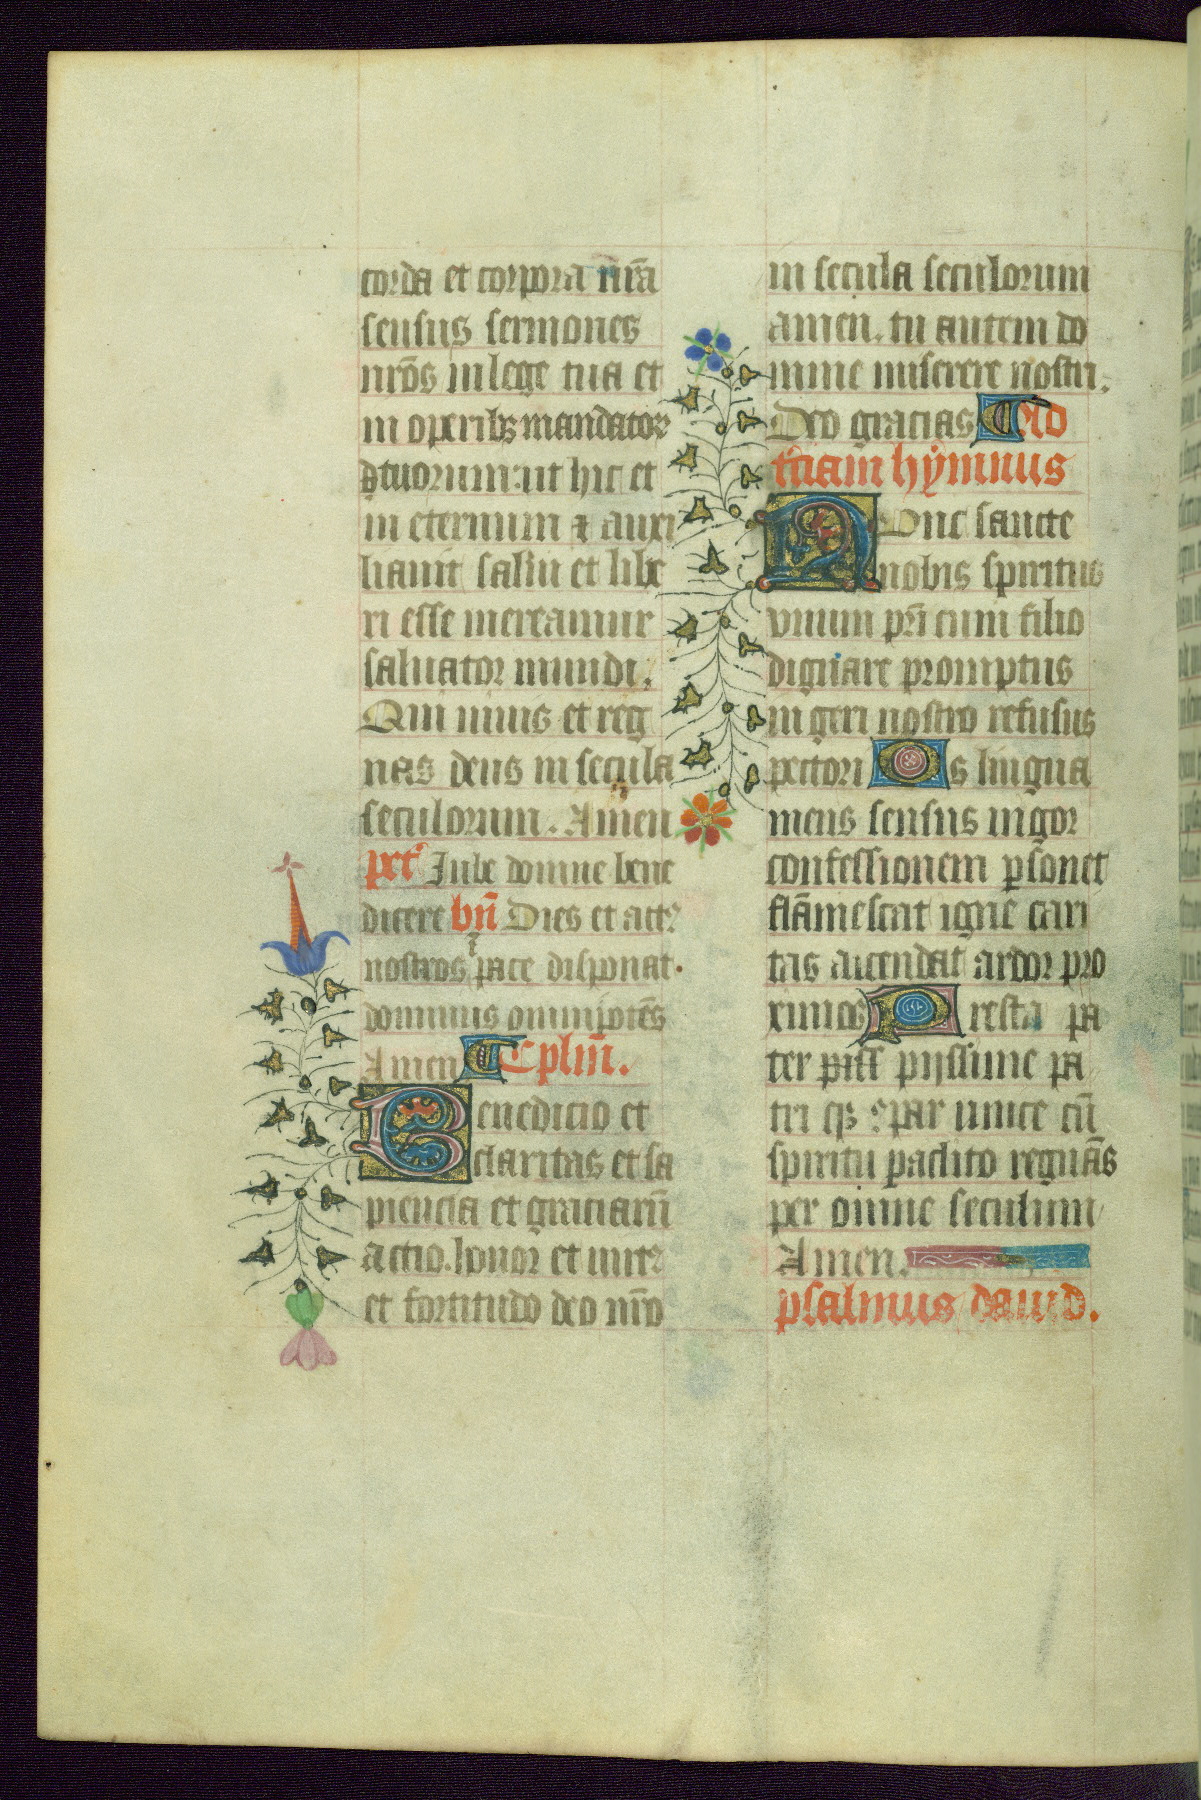 corda et corpora nr̄a
sensus sermones
nr̄os in lege tua et
in operibꝫ mandator
tuorum: ut hic et
in eternum ⁊ auxi
liauit salui et libe
ri esse mereamur
saluator mundi.
Qui uiuis et reg
nas deus in secula
seculorum. Amen
Iube domne bene
dicere bn̄ Dies et act
nostros ī pace disponat.
dominus omnipotēs
Amen Cplm̄.
Benedictio et
claritas et sa
piencia et graciarū
actio. honor et uirt
et fortitudo deo nr̄o
in secula seculorum
amen. tu autem do
mine miserere nostri.
Deo gracias Ad
tr̄ciam hymnus
Nunc sancte
nobis spiritus
vnum pr̄i cum filio
dignare promptus
in geri nostro refusus
pectori Os lingua
mens sensus uigor
confessionem ꝑsonet
flām̄escat igne cari
tas accendat ardor pro
ximos Presta pa
ter piissime pa
tri par unice cū
spiritu paclito regnās
per omne seculum
Amen.
psalmus dauid.